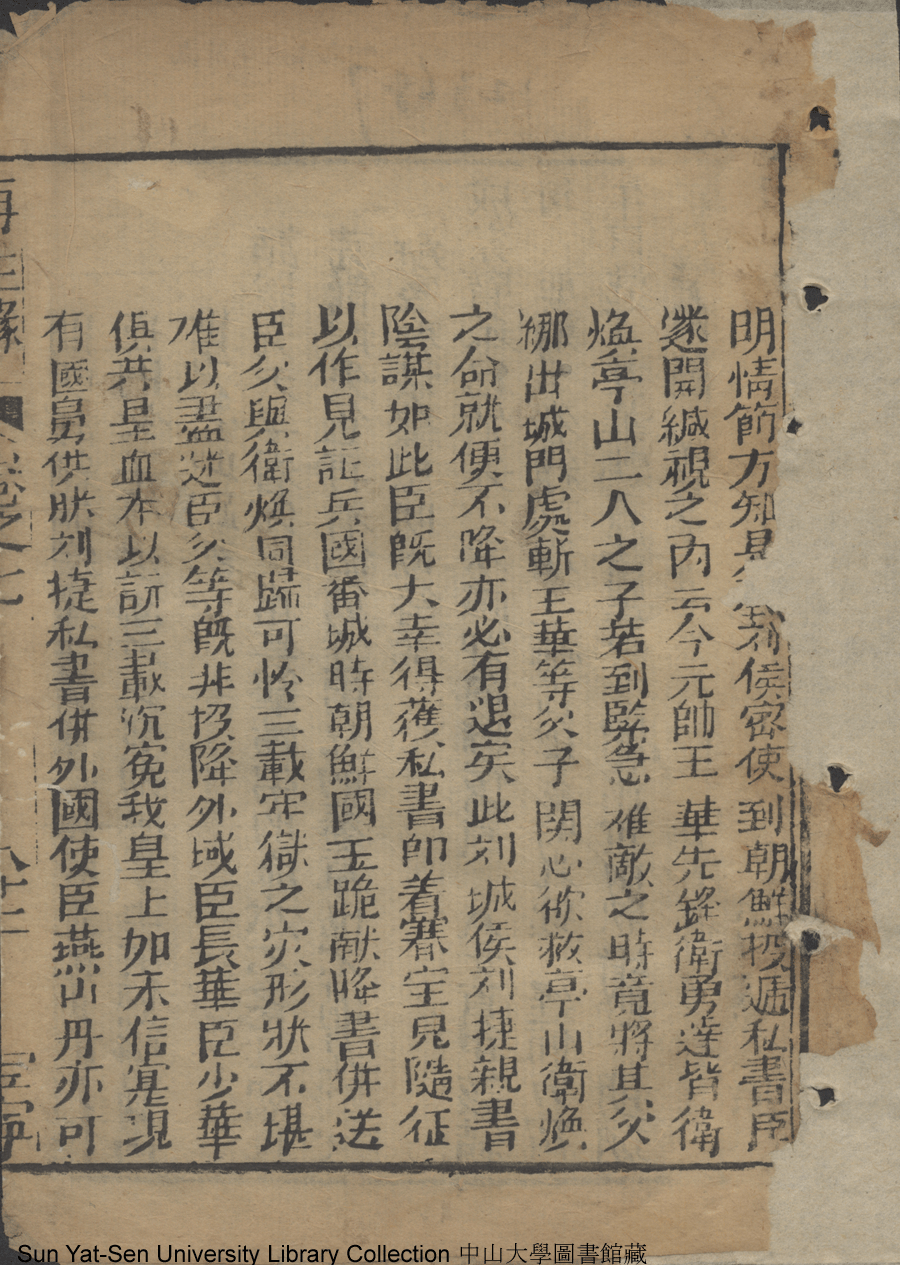 明情節方知是刘侯密使到朝鮮投遞私書臣
遂開緘視之內云今元帥王華先鋒衛勇達皆衛
煥亭山二人之子若到緊急难敵之時竟將其父
綁出城門處斬王華等父子関心欲救亭山衛煥
之命就便不降亦必有退矣此刘城侯刘捷親書
陰謀如此臣既大幸得獲私書即着寨宝見隨征
以作見証兵國番城時朝鮮國王跪献降書併送
臣父與衛煥同歸可怜三載牢獄之灾形狀不堪
准以盡述臣父等既非投降外域臣長華臣少華
俱共呈血本以訴三載沉冤我皇上如未信寔現
有國舅供狀刘捷私書併外國使臣燕山丹亦可
再生緣 卷之七 八十二
Sun Yat-Sen University Library Collection 中山大學圖書館藏